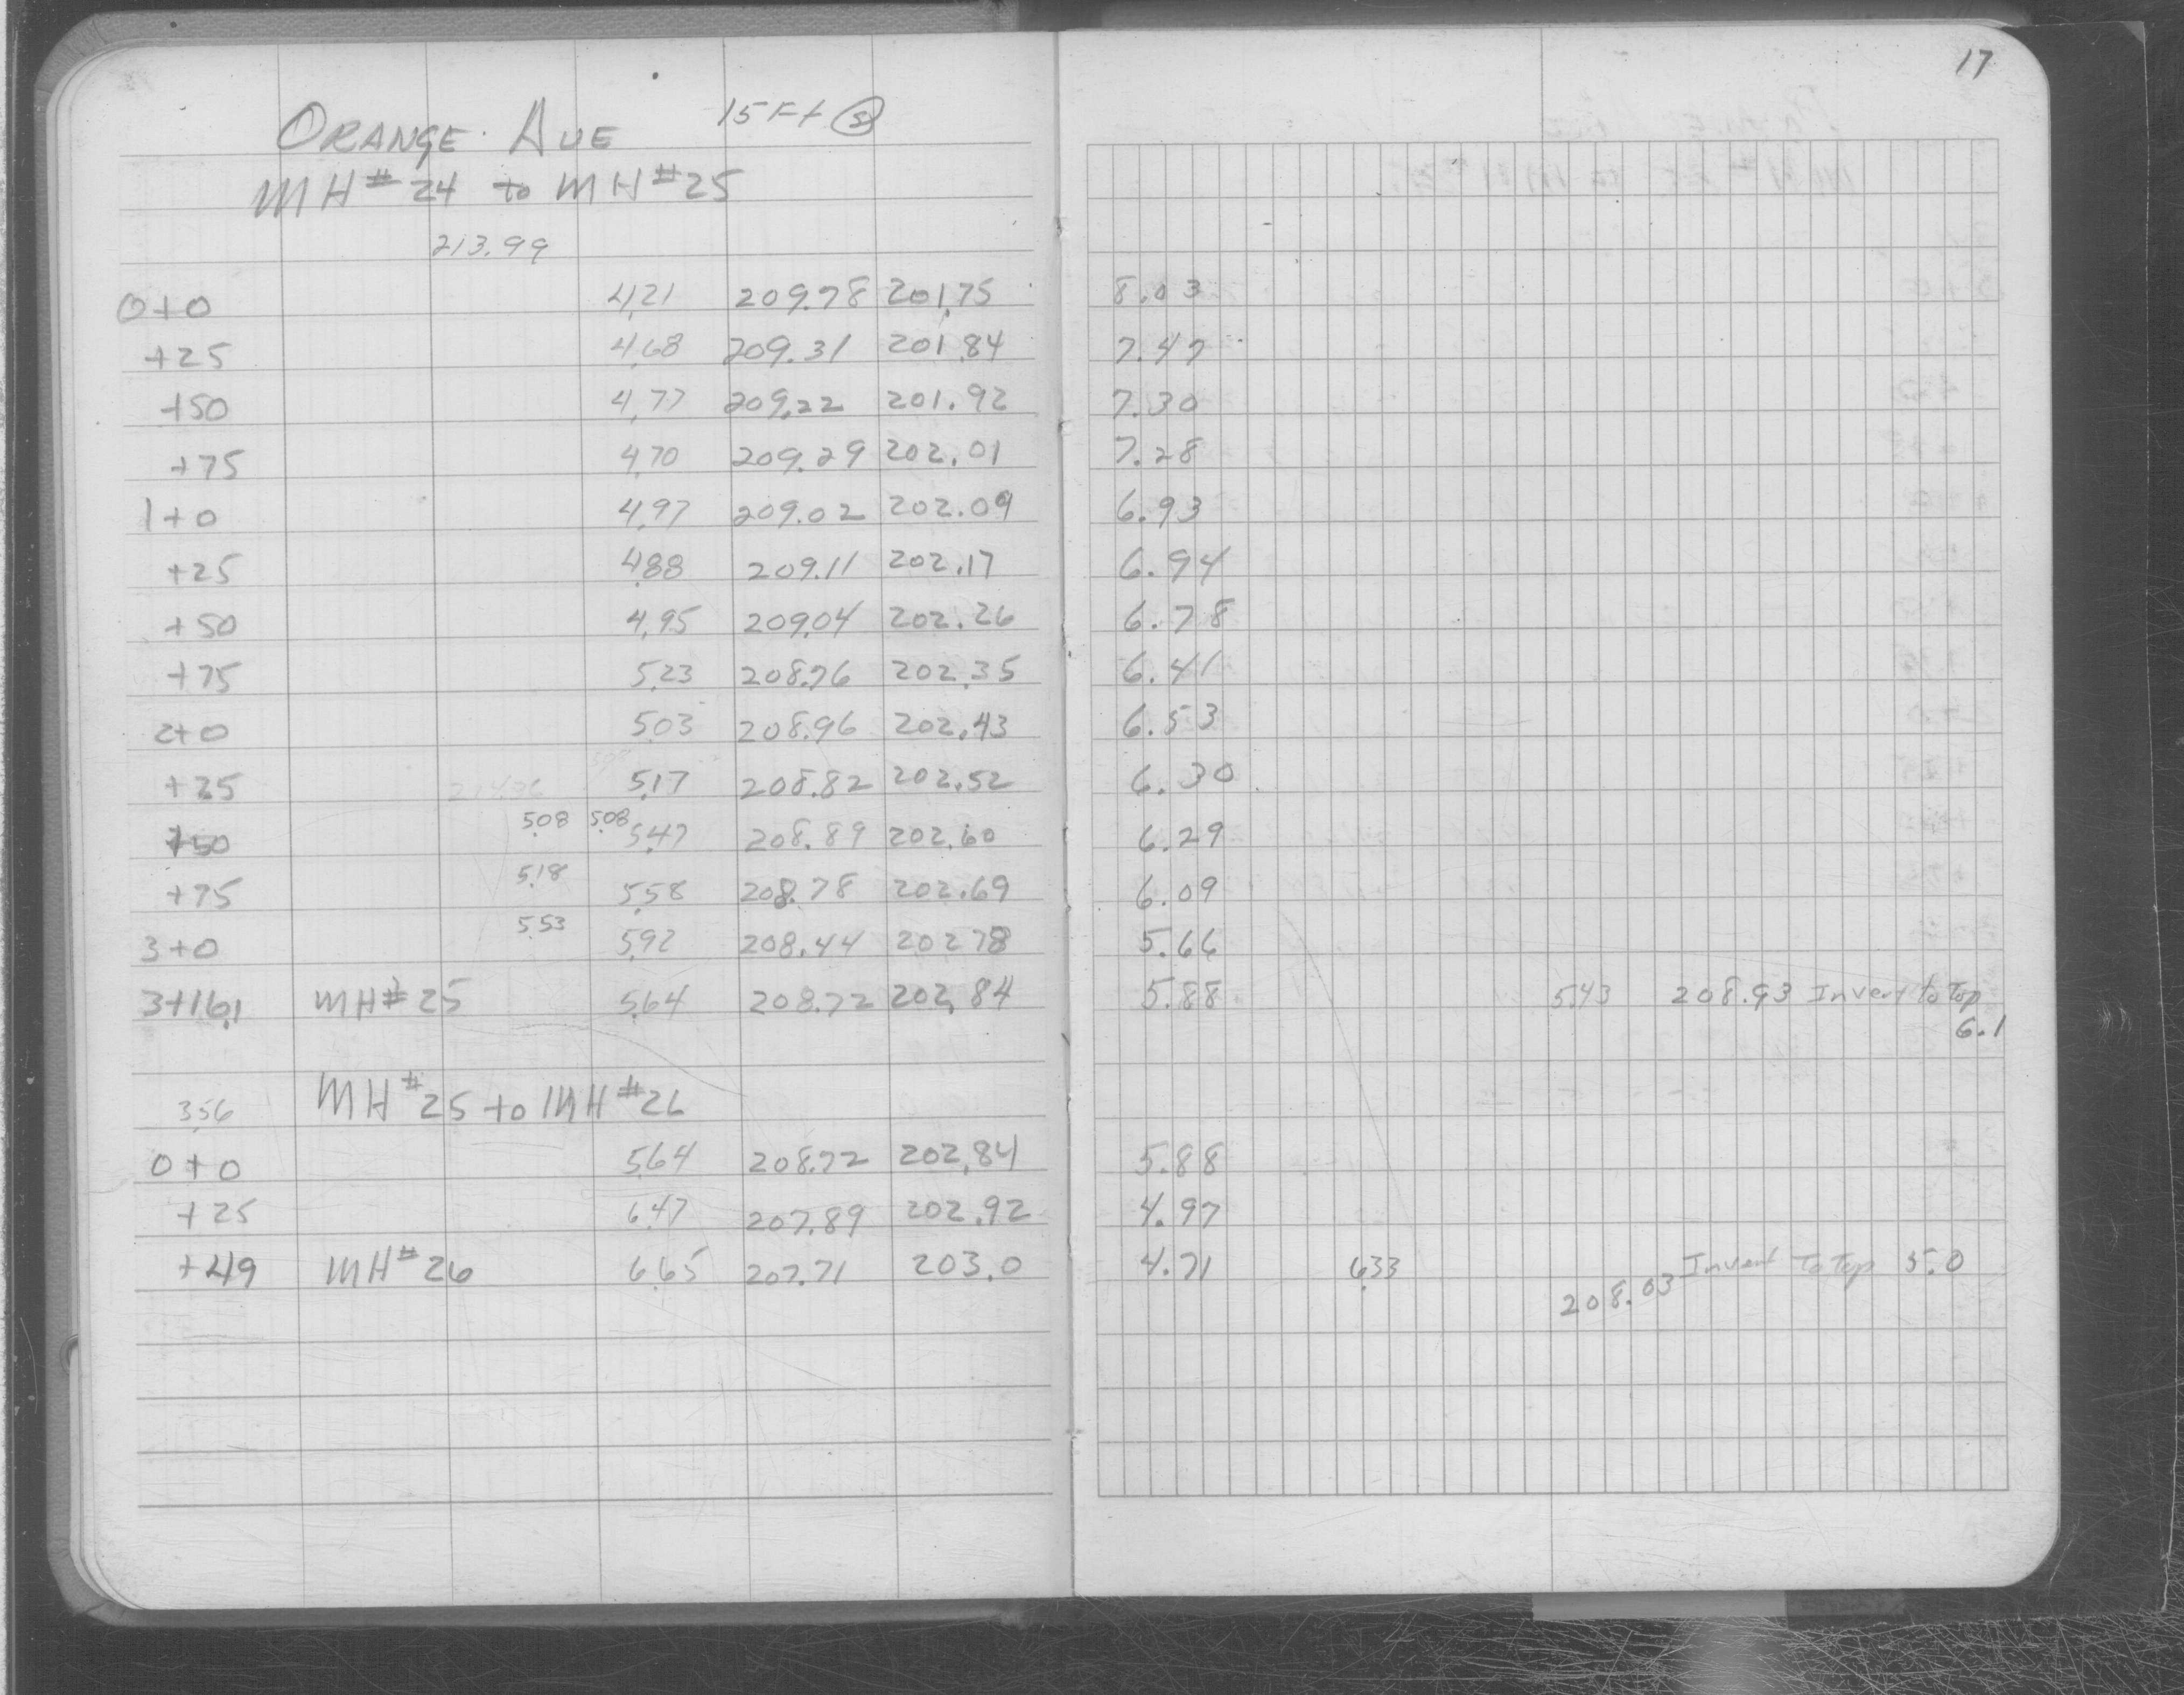 17
ORANGE AVE 15 Ft (S)
MH# 24 to MH# 25
213.99
0+0 4.21 209.78 201.75 8.03
+25 4.68 209.31 201.84 7.47
+50 4.77 209.22 201.92 7.30
+75 4.70 209.29 202.01 7.28
1+0 4.97 209.02 202.09 6.93
+25 4.88 209.11 202.17 6.94
+50 4.95 209.04 202.26 6.78
+75 5.23 208.76 202.35 6.41
2+0 5.03 208.96 202.43 6.53
+25 214.36 5.17 208.82 202.52 6.30
+50 5.08 5.08 5.47 208.89 202.60 6.29
+75 5.18 5.58 208.78 202.69 6.09
3+0 5.53 5.92 208.44 202.78 5.66
3+16.1 MH# 25 5.64 208.72 202.84 5.88 5.43 208.93 Invert to Top
6.1
3.56 MH# 25 to MH# 26
0+0 5.64 208.72 202.84 5.88
+25 6.47 207.89 202.92 4.97
+49 MH# 26 6.65 207.71 203.0 4.71 6.33 Invert To Top 5.0
208.03